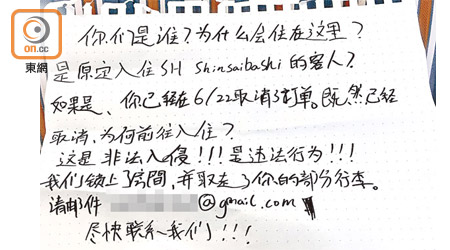 on.cc
東網
你们是谁？为什么会住在这里？
是原定入住SH Shinsaibashi的客人？
如果是、你已经在6/22取消了订单。既然已经
取消，为何前往入住？
这是非法入侵！！！是违法行为！！！
我们锁上了房间，并取走了你的部分行李。
请邮件 @gmail.com
尽快联系我们！！！